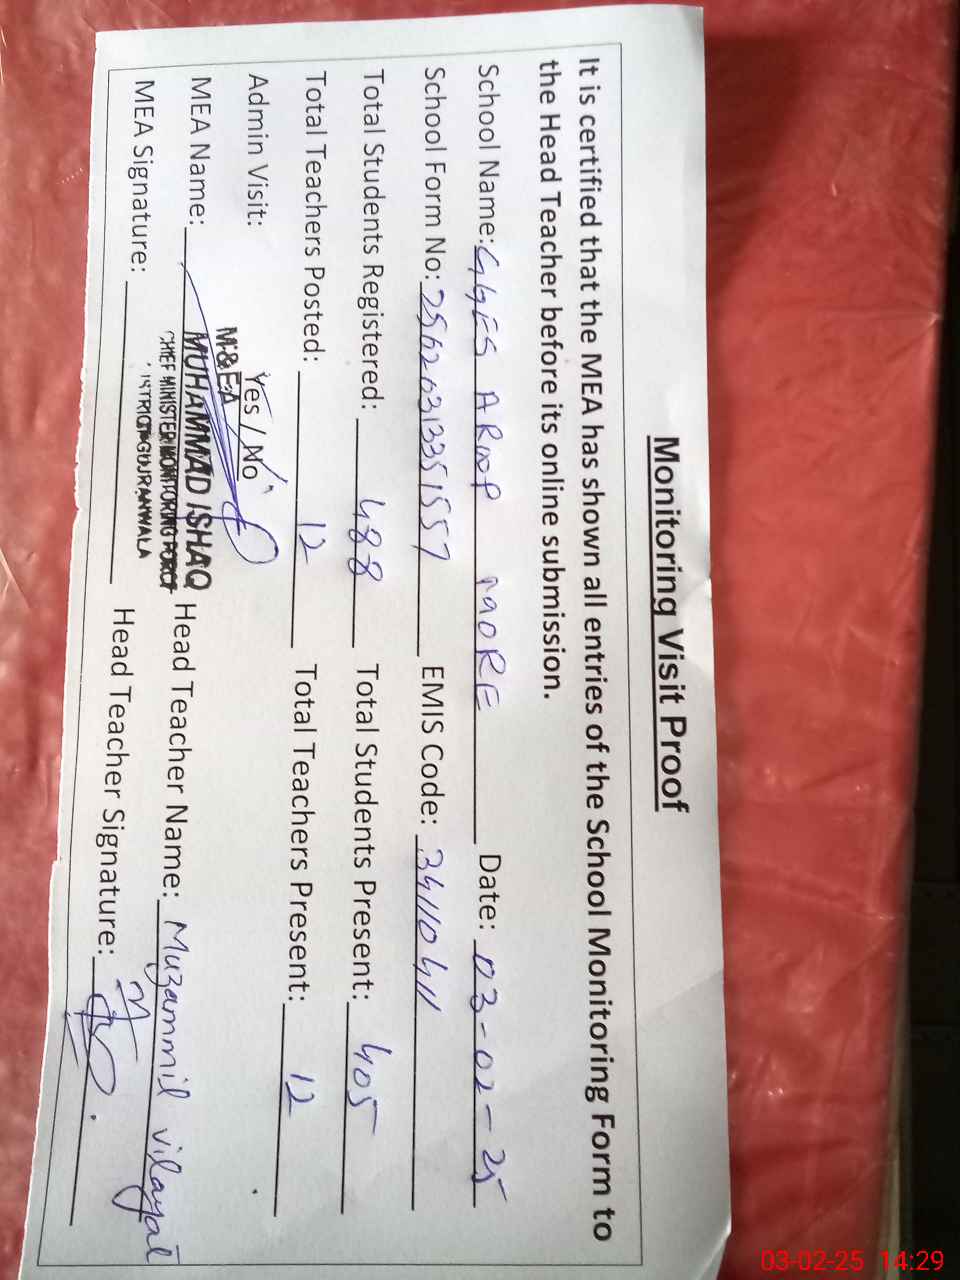 Monitoring Visit Proof
It is certified that the MEA has shown all entries of the School Monitoring Form to
the Head Teacher before its online submission.
School Name: GGES AROOP MORE Date: 03-02-25
School Form No: 25620313351557 EMIS Code: 34110411
Total Students Registered: 488 Total Students Present: 405
Total Teachers Posted: 12 Total Teachers Present: 12
Admin Visit: Yes / No
M&EA
MEA Name: MUHAMMAD ISHAQ Head Teacher Name: Muzammil vilayat
CHIEF MINISTER MONITORING FORCE
MEA Signature: Head Teacher Signature:
ISTRICT GUJRANWALA
03-02-25 14:29